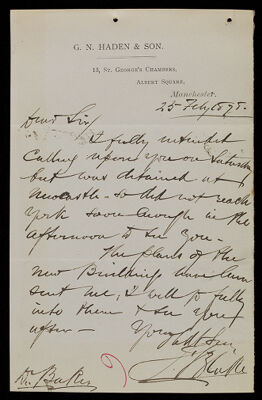 G. N. HADEN & SON.
13, ST. GEORGE'S CHAMBERS,
ALBERT SQUARE,
Manchester,
25 Feby 1895.
Dear Sir/
I fully intended
Calling upon you on Saturday
but was detained at
Newcastle - so did not reach
York soon enough in the
afternoon to see you -
The plans of the
new Buildings have been
sent me, I will go fully
into them & see you
after -
Yours ffl Sir
Blake
Dr. Baker